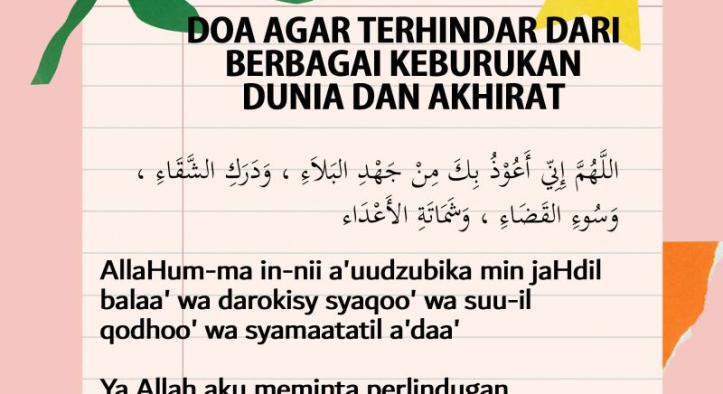 DOA AGAR TERHINDAR DARI
BERBAGAI KEBURUKAN
DUNIA DAN AKHIRAT
اللَّهُمَّ إِنِّي أَعُوْذُ بِكَ مِنْ جَهْدِ البَلاَءِ ، وَدَرَكِ الشَّقَاءِ ،
وَسُوءِ القَضَاءِ ، وَشَمَاتَةِ الأَعْدَاء
AllaHum-ma in-nii a'uudzubika min jaHdil
balaa' wa darokisy syaqoo' wa suu-il
qodhoo' wa syamaatatil a'daa'
Ya Allah aku meminta perlindugan